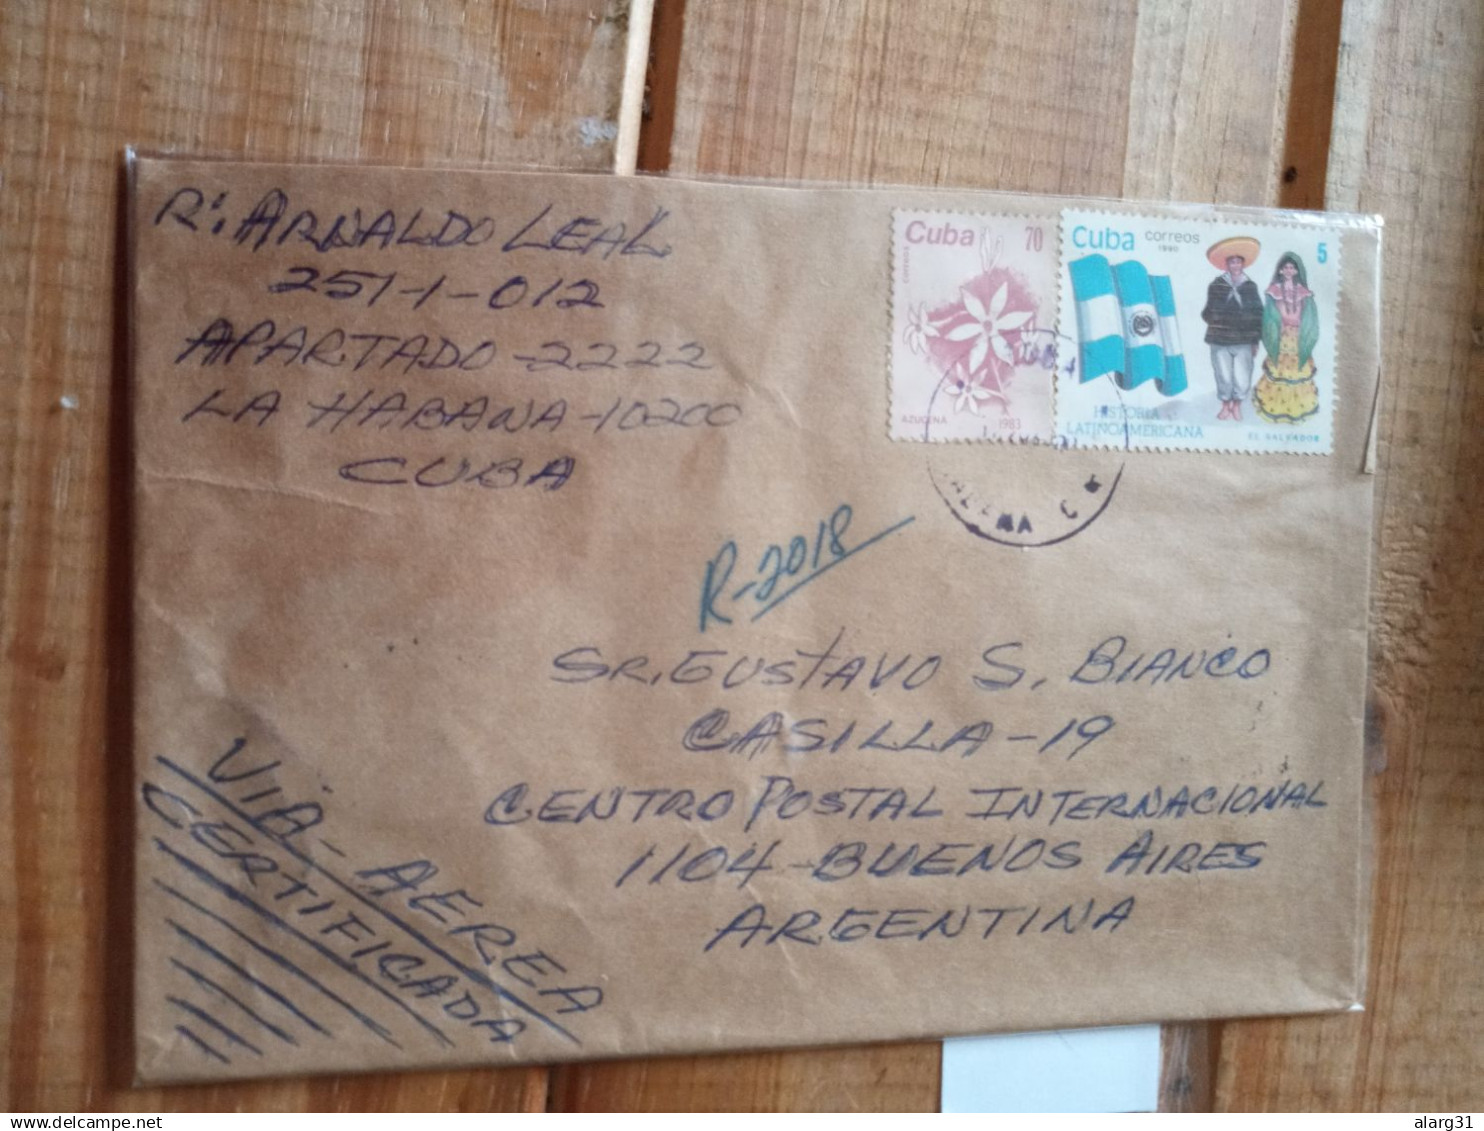 R: ARNALDO LEAL
251-1-012
APARTADO-2222
LA HABANA-10200
CUBA
Cuba 70
CORREOS
AZUCENA 1983
Cuba correos 5
1990
HISTORIA
LATINOAMERICANA
EL SALVADOR
R-2018
SR. GUSTAVO S. BIANCO
CASILLA-19
CENTRO POSTAL INTERNACIONAL
1104-BUENOS AIRES
ARGENTINA
VIA-AEREA
CERTIFICADA
delcampe.net
alarg31